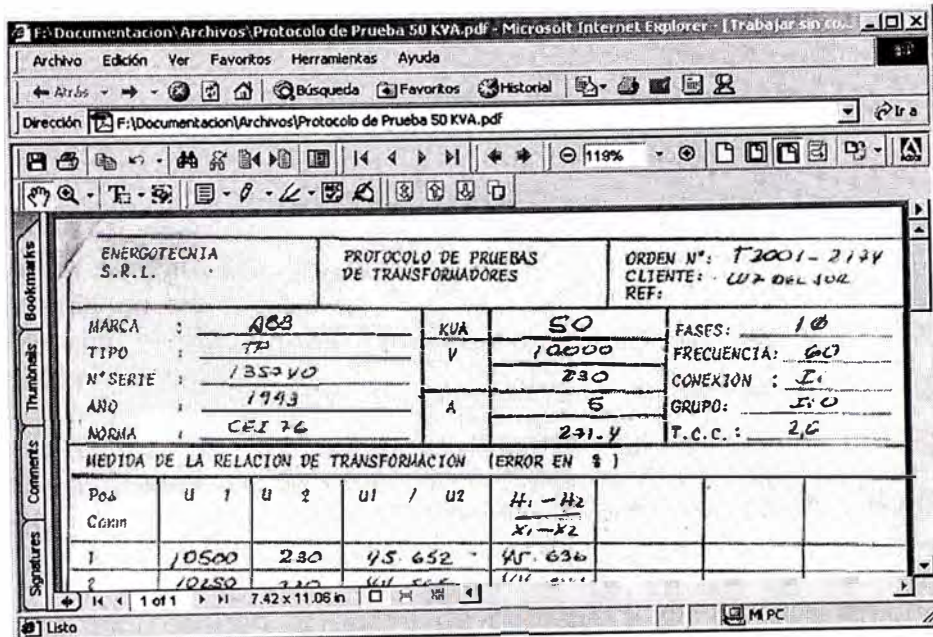 F:\Documentacion\Archivos\Protocolo de Prueba 50 KVA.pdf - Microsoft Internet Explorer - [Trabajar sin co...
Archivo Edición Ver Favoritos Herramientas Ayuda
Atrás Búsqueda Favoritos Historial
Dirección F:\Documentacion\Archivos\Protocolo de Prueba 50 KVA.pdf Ir a
119%
Bookmarks
Thumbnails
Comments
Signatures
ENERGOTECNIA S.R.L.
PROTOCOLO DE PRUEBAS DE TRANSFORMADORES
ORDEN N°: T2001-2134
CLIENTE: LUZ DEL SUR
REF:
MARCA : ABB KVA 50 FASES: 1Ø
TIPO : V 10000 FRECUENCIA: 60
N°SERIE : 230 CONEXION : Ii
AÑO : A 5 GRUPO: Ii0
NORMA : CEI 76 T.C.C. : 2,6
MEDIDA DE LA RELACION DE TRANSFORMACION (ERROR EN % )
Pos Conm U 1 U 2 U1 / U2 H1-H2 X1-X2
1 10500 230 45.652 45.636
2 10250
1 of 1 7.42 x 11.06 in
Listo Mi PC